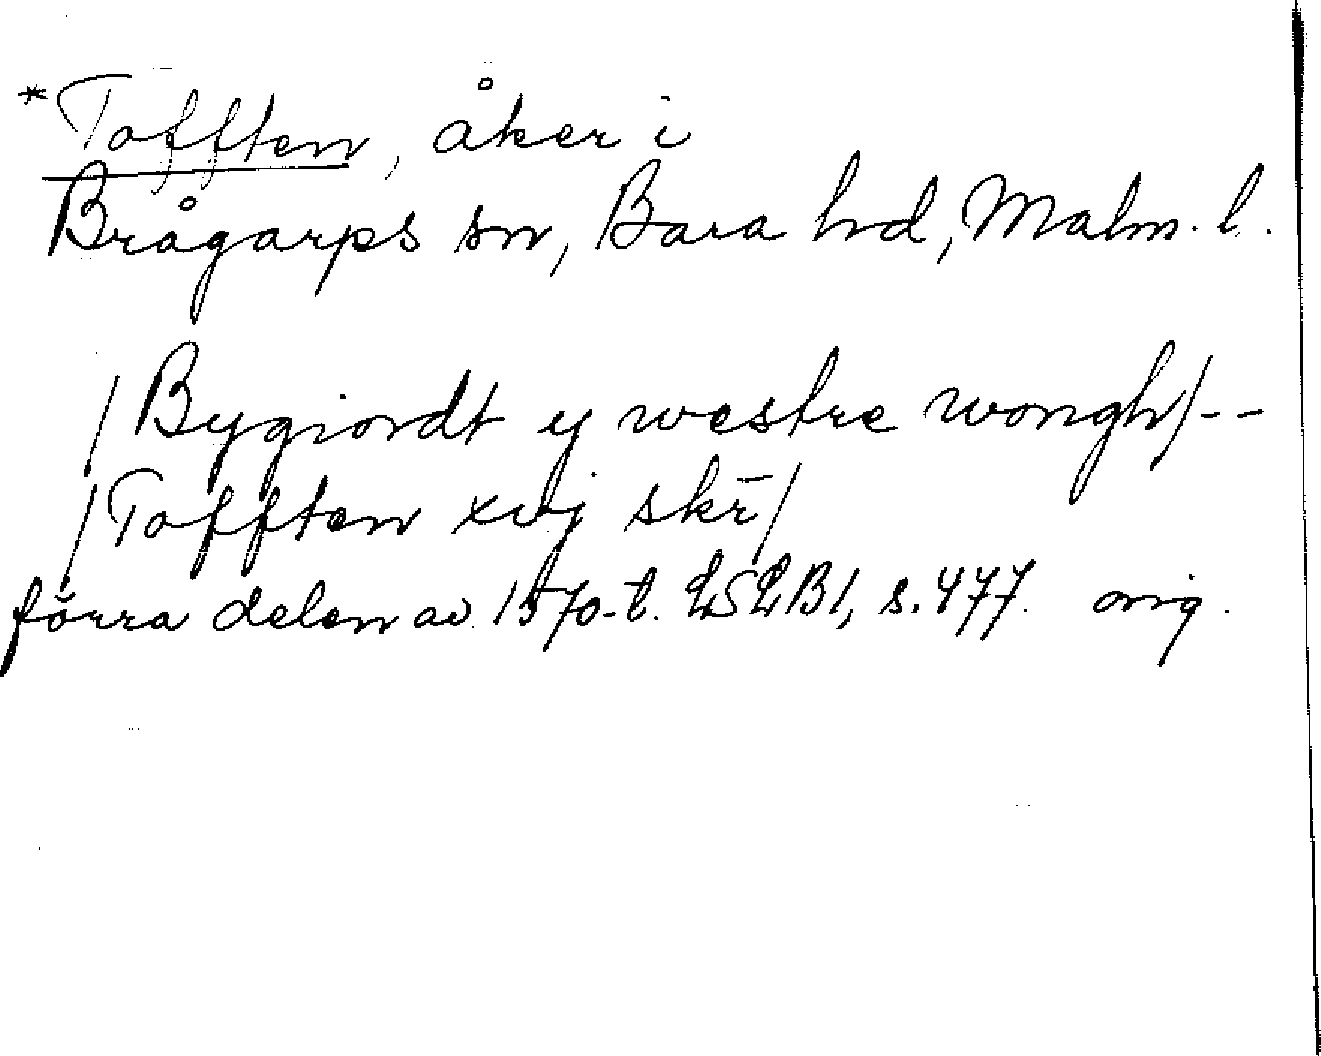 *Tofften, åker i
Brågarps sn, Bara hd, Malm. l.
/Bygiordt ij westre wongh/--
/Tofften xvj skr̄/
förra delen av 1570-t. LSLB1, s. 477. orig.